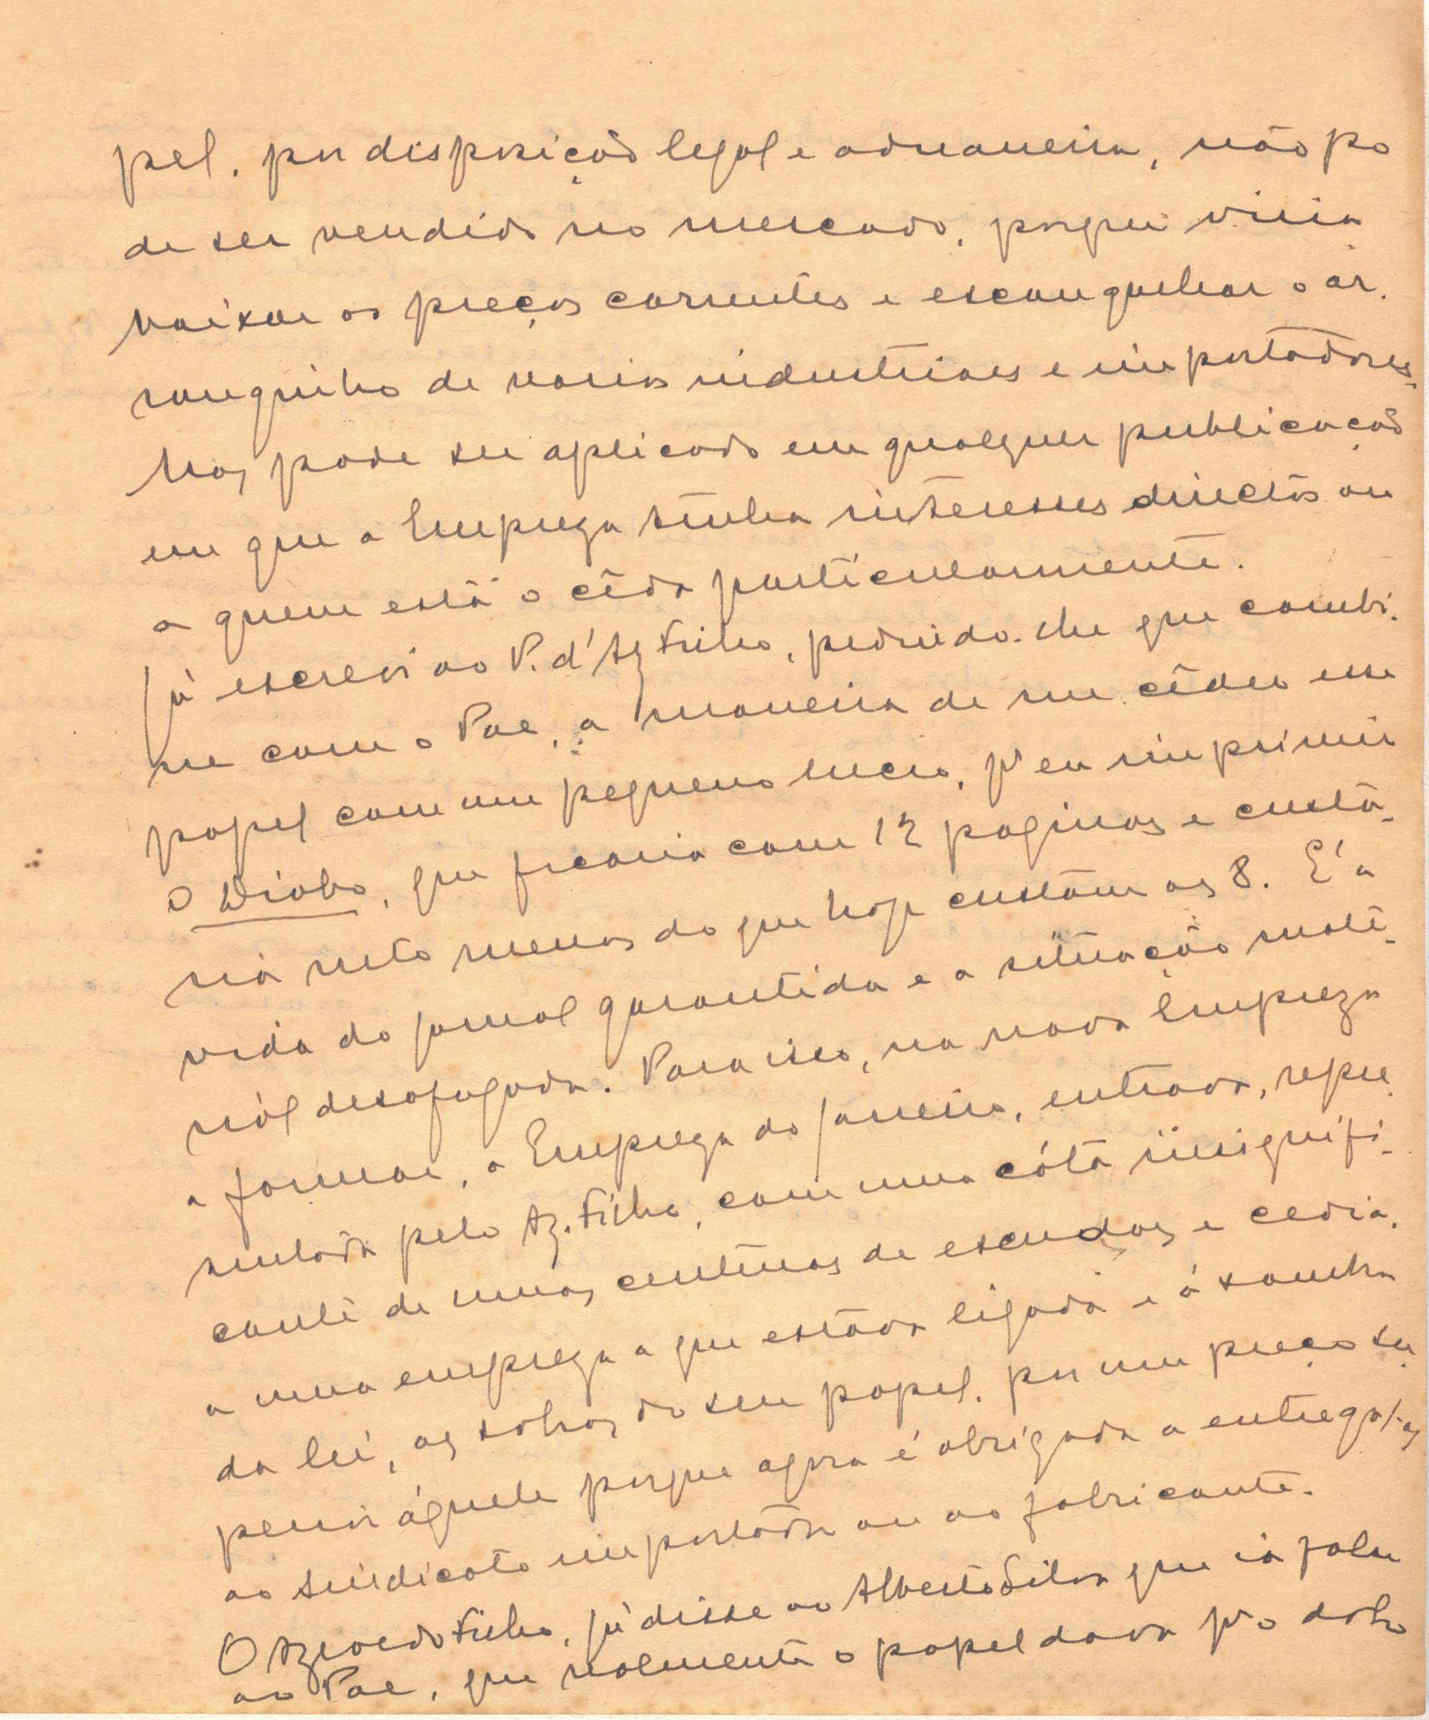 pel, por disposição legal e aduaneira, não po
de ser vendido no mercado, porque viria
baixar os preços correntes e escangalhar o ar-
ranginho de varios industriaes e importadores.
Mas pode ser aplicado em qualquer publicação
em que a Empreza tenha interesses directos ou
a quem está o céda particularmente.
Já escrevi ao P. d'Az. Filho, pedindo-lhe que combi-
ne com o Pae, a maneira de me céder esse
papel com um pequeno lucro, p.ª eu imprimir
O Diabo, que ficaria com 12 paginas e custa-
ria mto menos do que hoje custam as 8. E' a
vida do jornal garantida e a situação mate-
rial desafogada. Para isso, na nova Empreza
a formar, a Empreza do Janeiro, entrava, repre-
sentada pelo Az. Filho, com uma cóta insignifi-
cante de umas centenas de escudos e cedia,
a uma empreza a que estava ligada e á sombra
da lei, as sobras do seu papel, por um preço su-
perior áquele porque agora é obrigada a entrega-las
ao sindicato importador ou ao fabricante.
O Azevedo Filho, já disse ao Alberto Silva que ia falar
ao Pae, que realmente o papel dava p.ª o dobro